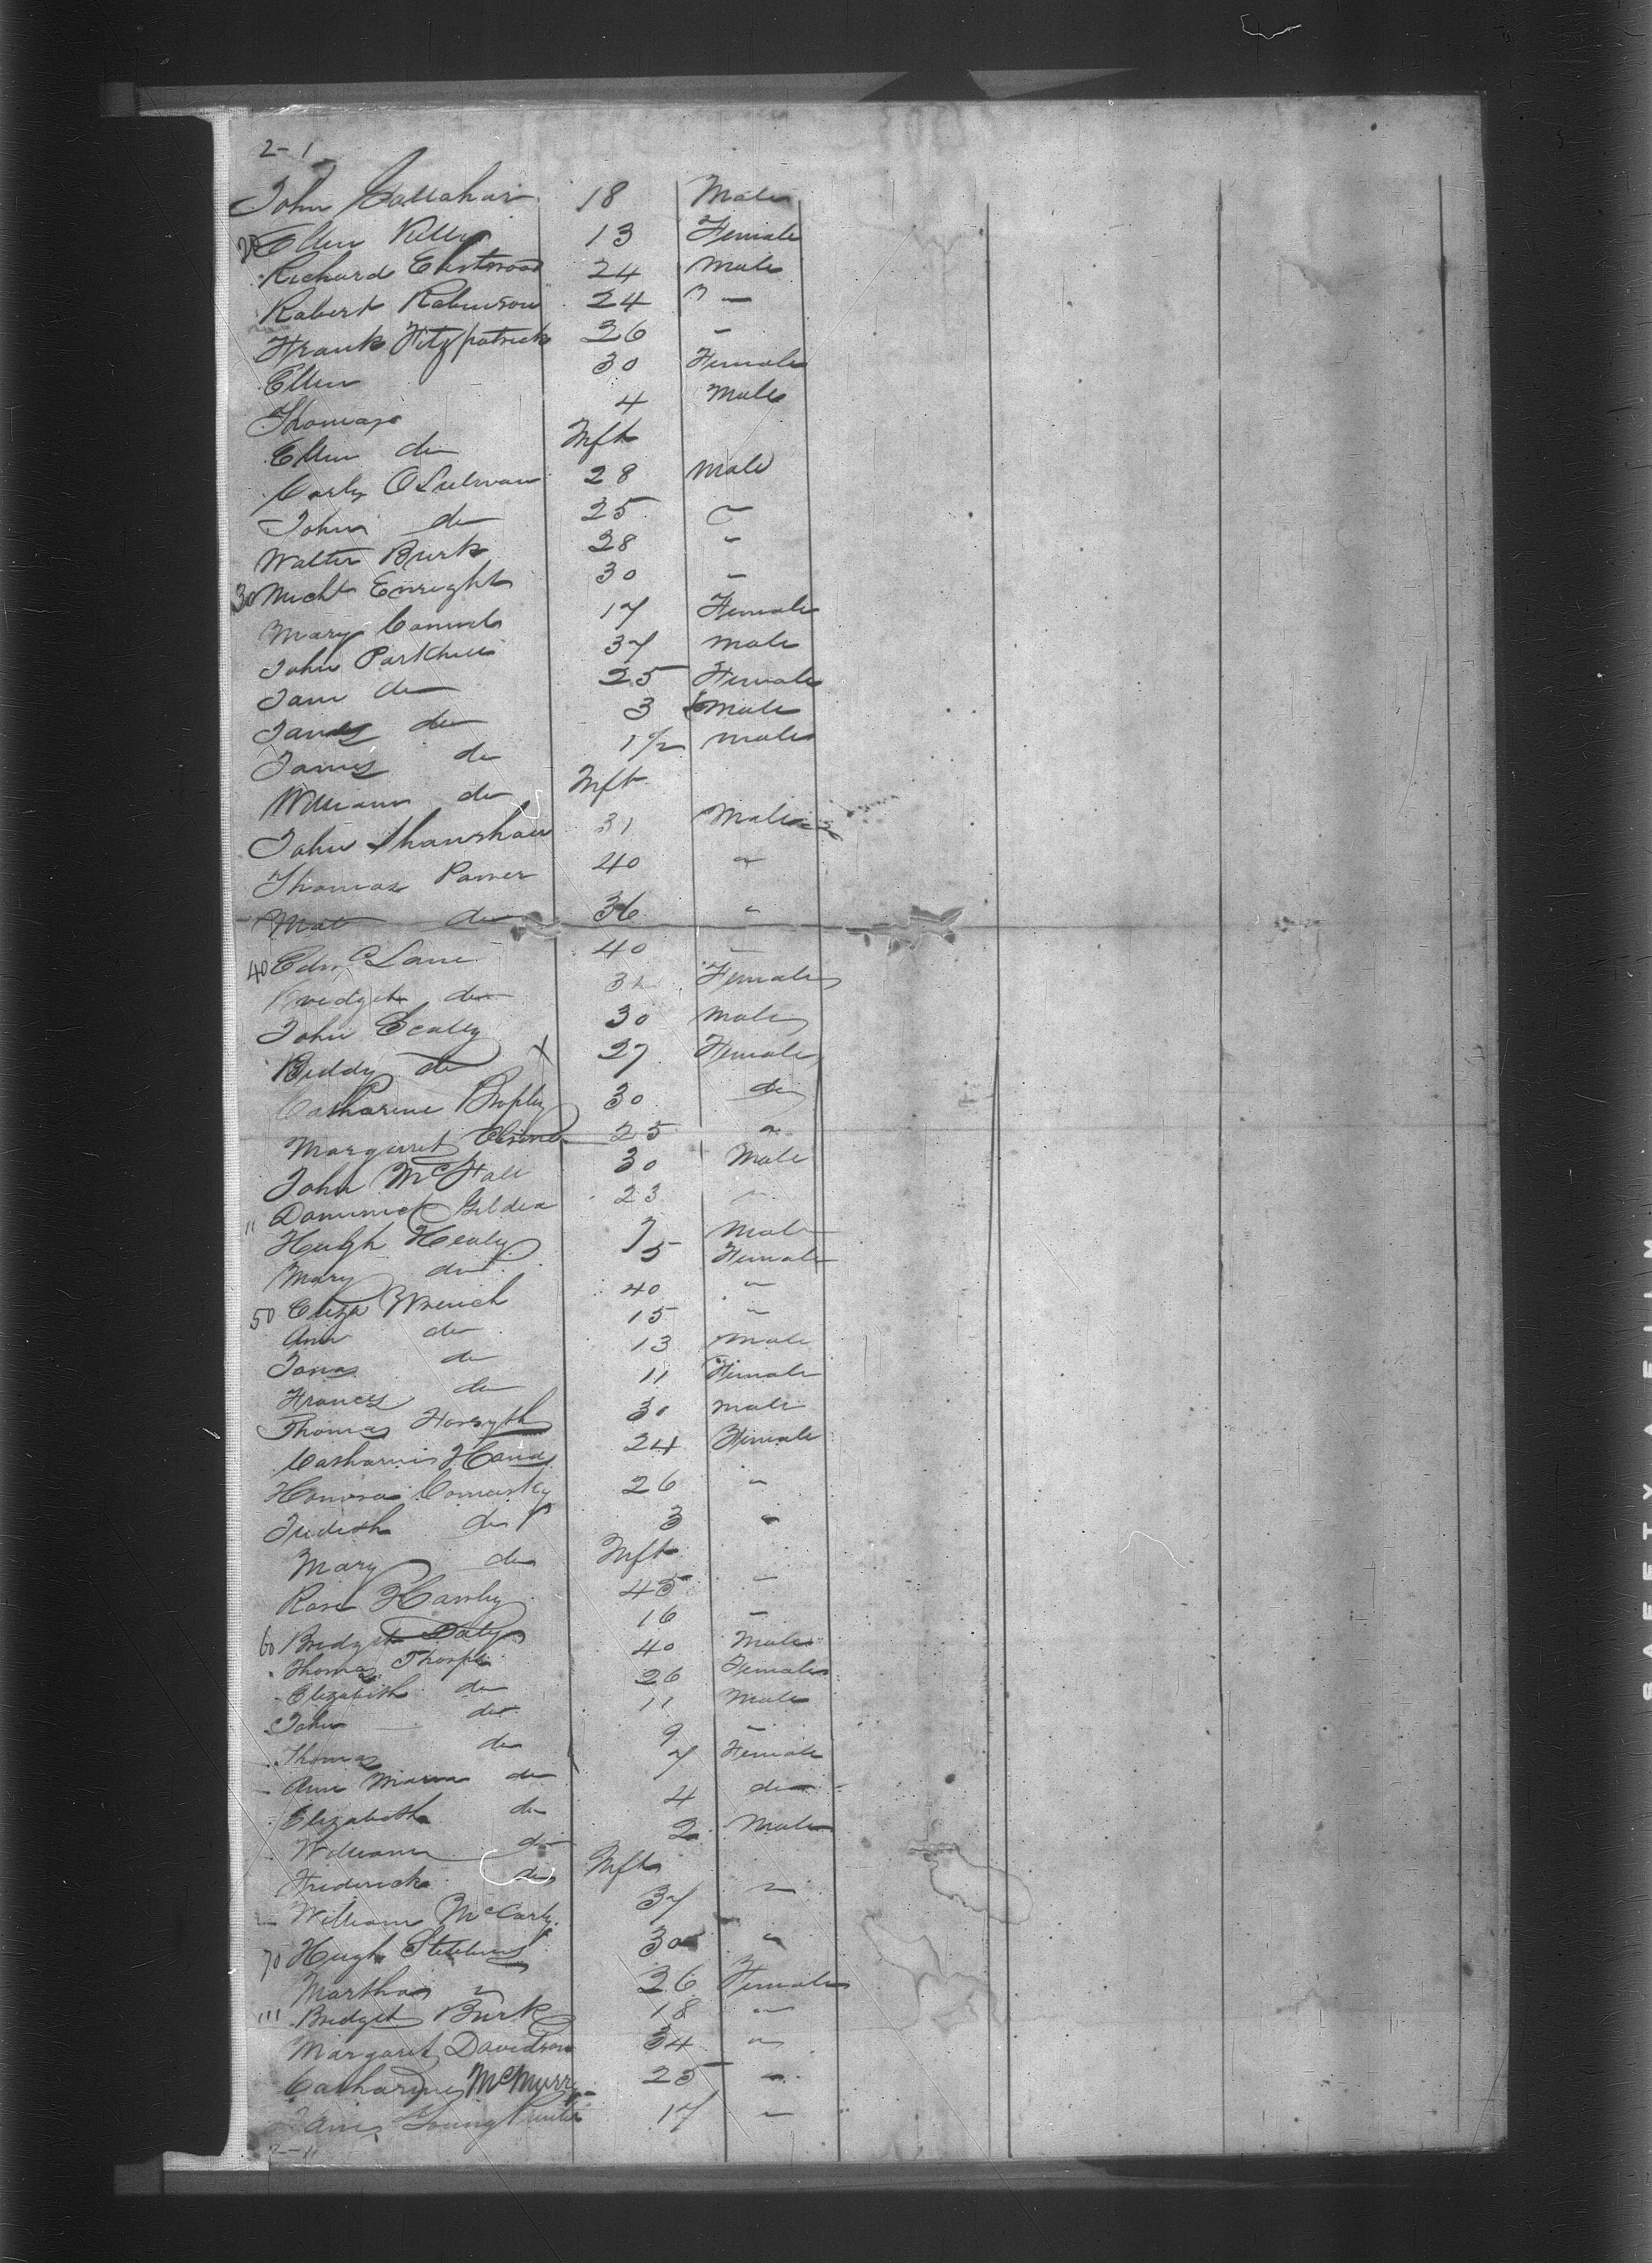 2-1
John Callahan 18 Male
20 Ellen Kelly 13 Female
Richard Eastwood 24 Male
Robert Robinson 24 " —
Frank Fitzpatrick 26 —
Ellen 30 Female
Thomas 4 Male
Ellen do Inft
OSulivan 28 Male
John do 25 "
Walter Burk 28 "
30 Michl Enright 30 —
Mary 17 Female
John Parkhill 37 Male
Jane do 25 Female
do 3 Male
James do 1 1/2 Male
William do Inft
John 31 Male
Thomas Power 40 "
Mat do 36 "
40 Edw Lane 40 —
Bridget do Female
John Scally 30 Male
Biddy do X 27 Female
Catharine Brophy 30 do
Margaret 25 "
John McHale 30 Male
" Dominick Gildea 23 "
Hugh Healy 7 Male
Mary do 5 Female
50 Eliza Wrench 40 "
Ann do 15 "
Jonas do 13 Male
Frances do 11 Female
Thomas Forsyth 30 Male
Catharine Hand 24 Female
Honora Comasky 26 "
Judith do 3 "
Mary do Inft
Rose Hanly 45 —
60 Bridget Daly 16 —
Thomas Thorpe 40 Male
Elizabeth do 26 Female
John do 11 Male
Thomas do 9 —
Ann Maria do 7 Female
Elizabeth do 4 do
William do 2 Male
Frederick do Inft
William McCarty 37 "
70 Hugh Stebbins 30 "
Martha " 26 Female
"' Bridget Burk 18 "
Margaret Davidson 34 "
Catharine McMurry 25 "
Young 17 "
2-11
SAFETY FILM